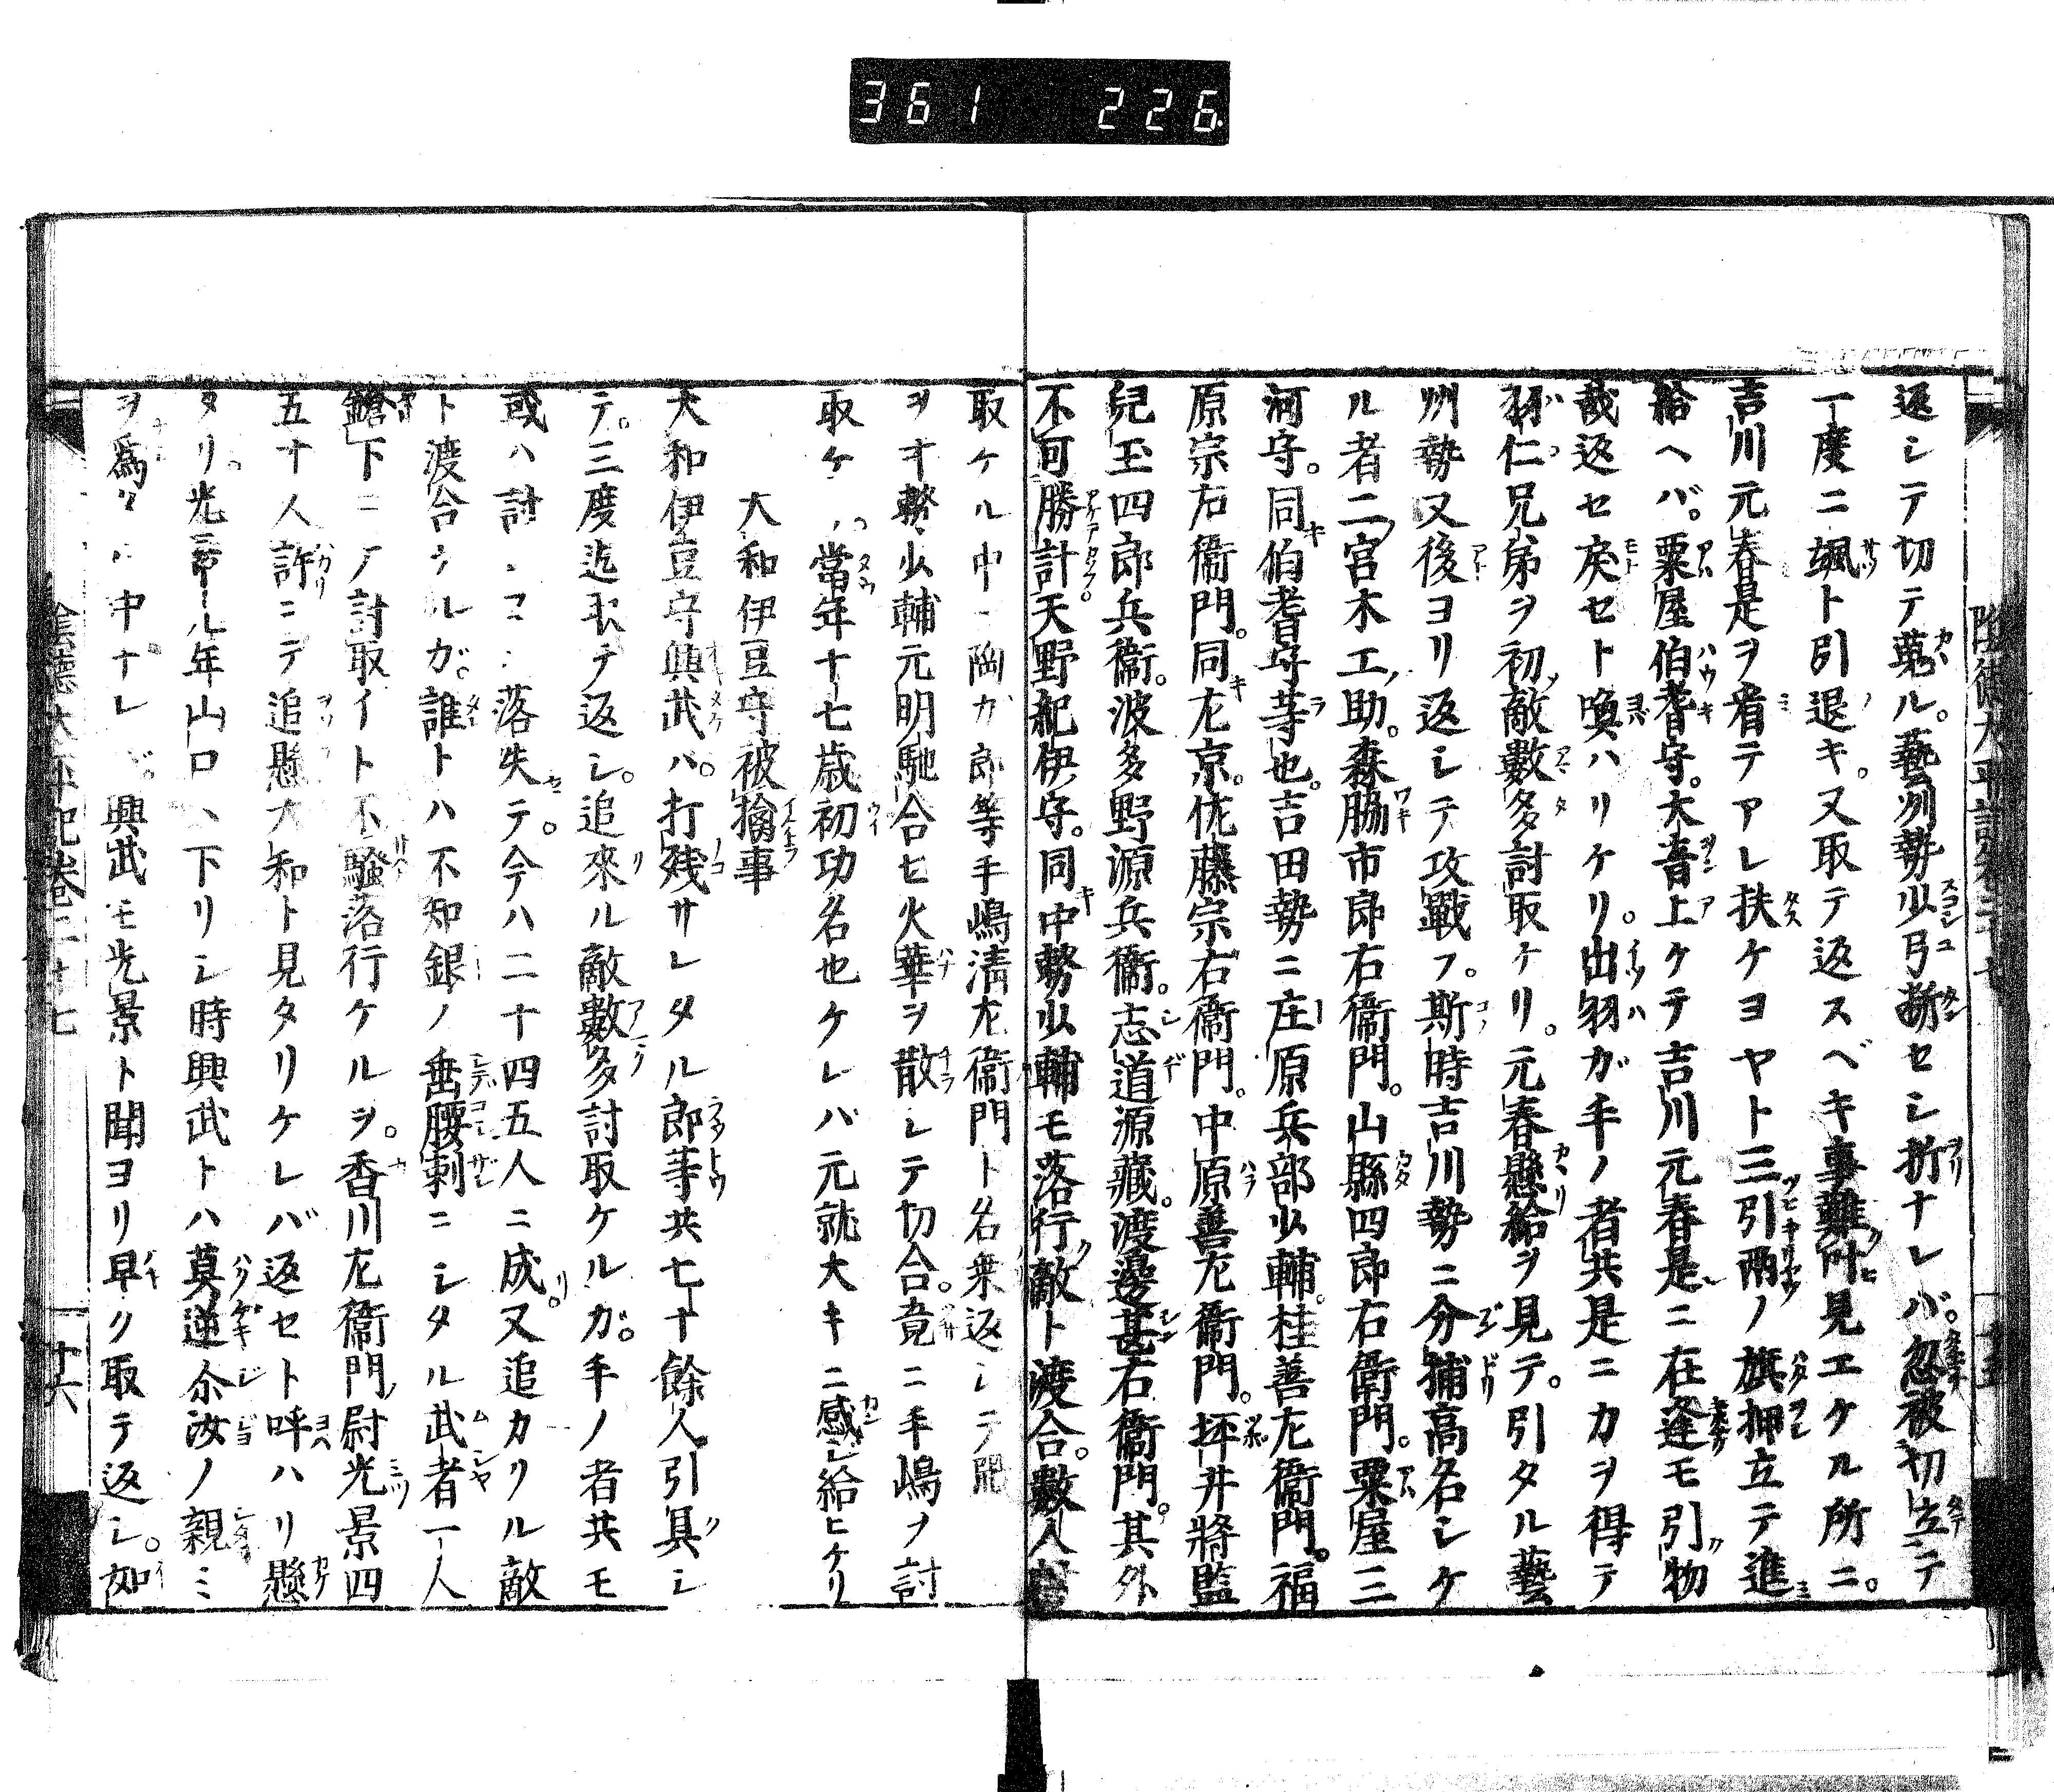 361 226
返シテ切テ蒐ル。藝州勢少弓断セシ折ナレバ。忽被切立テ
一度ニ颯ト引退キ。又取テ返スベキ事難叶見エケル所ニ。
吉川元春是ヲ看テアレ扶ケヨヤト三引兩ノ旗押立テ進
給ヘバ。粟屋伯耆守。大音上ケテ吉川元春是ニ在逢モ引物
哉返セ戻セト喚ハリケリ。出羽ガ手ノ者共是ニカヲ得テ
杯仁兄弟ヲ初敵數多討取ケリ。元春懸給ヲ見テ。引タル藝
州勢又後ヨリ返シテ攻戰フ。斯時吉川勢ニ分捕高名シケ
ル者二宮木工助。森脇市郎右衞門。山縣四郎右衞門。粟屋三
河守。同伯耆守等也。吉田勢ニ庄原兵部少輔。桂善左衞門。福
原宗右衞門。同左京。佐藤宗右衞門。中原善左衞門。坪井將監
兒玉四郎兵衞。波多野源兵衞。志道源藏。渡邊甚右衞門。其外
不可勝計天野紀伊守。同中務少輔モ落行敵ト渡合。數人
取ケル中ニ陶ガ郎等手嶋清左衞門ト名乗返シテ
ヲ中務少輔元明馳合セ火華ヲ散レテ切合。竟ニ手嶋ヲ討
取ケ 。當年十七歳初功名也ケレバ元就大キニ感シ給ヒケリ
大和伊豆守被擒事
大和伊豆守興武ハ。打残サレタル郎等共七十餘人引具シ
テ。三度迄取テ返シ。追來ル敵數多討取ケルガ。手ノ者共モ
或ハ討 落失テ。今ハ二十四五人ニ成。又追カリル敵
ト渡合 ルガ。誰トハ不知銀ノ 腰刺ニシタル武者一人
鎗下ニ 討取イト不騷落行ケルヲ。香川左衞門尉光景四
五十人許ニテ追懸大和ト見タリケレバ返セト呼ハリ懸
タリ。光 年山口ヘ下リシ時興武トハ莫逆尒汝ノ親ミ
ヲ爲 中ナレバ。興武モ光景ト聞ヨリ早ク取テ返シ。如
陰德太平記卷二十七 十六